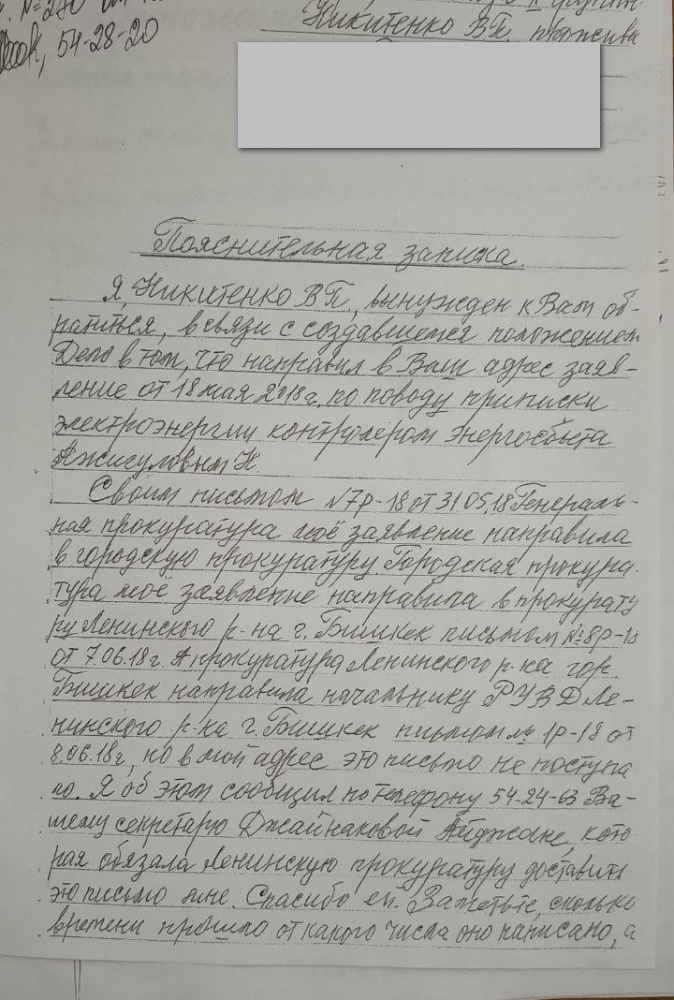 № 230 от
54-28-20
Никитенко В.П. прожива
Пояснительная записка.
Я, Никитенко В.П., вынужден к Вам об-
ратиться, в связи с создавшемся положением
Дело в том, что направил в Ваш адрес заяв-
ление от 18 мая 2018 г, по поводу приписки
электроэнергии контролёром Энергосбыта
Ажигуловым Н.
Своим письмом №7р-18 от 31.05.18 Генераль-
ная прокуратура моё заявление направила
в городскую прокуратуру. Городская прокура-
тура моё заявление направила в прокурату
ру Ленинского р-на г. Бишкек письмом №8р-18
от 7.06.18 г. А прокуратура Ленинского р-на гор.
Бишкек направила начальнику РУВД Ле-
нинского р-на г. Бишкек письмом № 1р-18 от
8.06.18 г, но в мой адрес это письмо не поступа
ло. Я об этом сообщил по телефону 54-24-63 Ва-
шему секретарю Джайнаковой Айджане, кото
рая обязала Ленинскую прокуратуру доставить
это письмо мне. Спасибо ей. Заметьте, сколько
времени прошло от какого числа оно написано, а